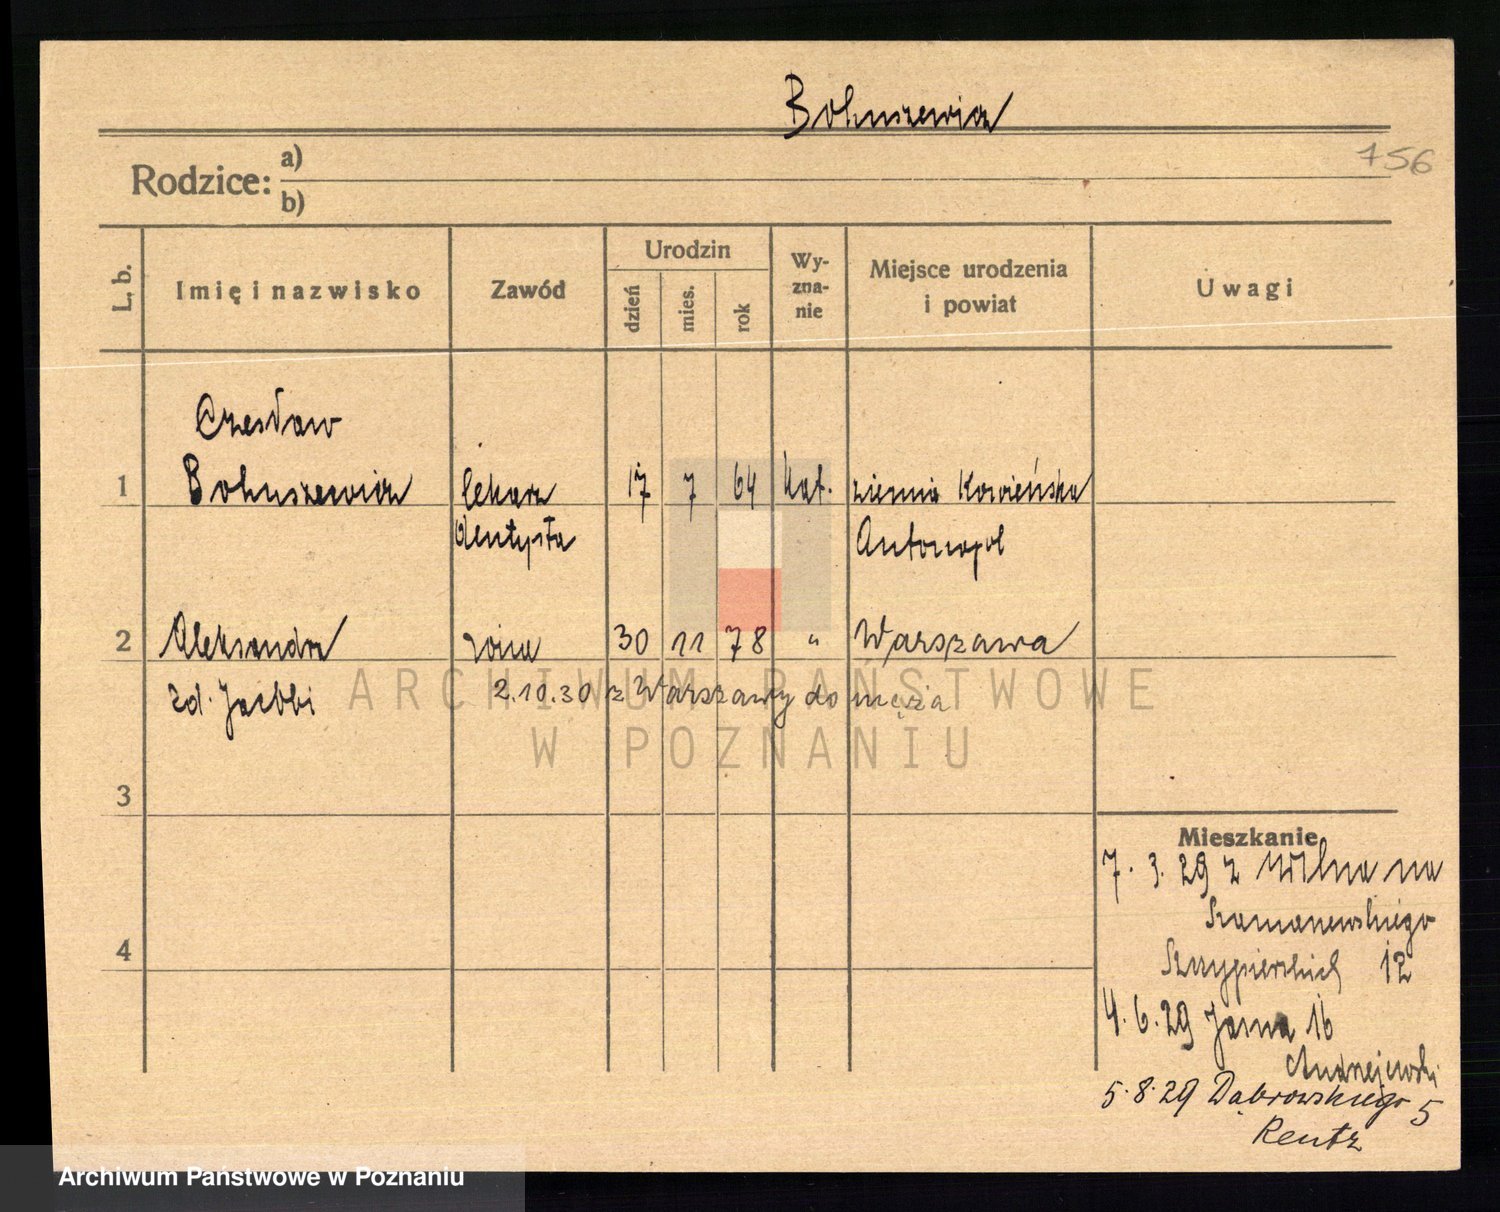 Bohuszewicz
156
Rodzice: a)
b)
L. b.
Imię i nazwisko
Zawód
Urodzin
dzień
mies.
rok
Wy-
zna-
nie
Miejsce urodzenia
i powiat
Uwagi
Czesław
1 Bohuszewicz lekarz 17 7 64 kat. ziemia Kowieńska
dentysta Antonopol
2 Aleksandra żona 30 11 78 " Warszawa
zd. Jacobi 2.10.30 z Warszawy do męża
ARCHIWUM PAŃSTWOWE
W POZNANIU
3
4
Mieszkanie
7. 3. 29 z Wilna na
Szamarzewskiego
12
4. 6. 29 Jasna 16
Andrzejewski
5. 8. 29 Dąbrowskiego 5
Rentz
Archiwum Państwowe w Poznaniu